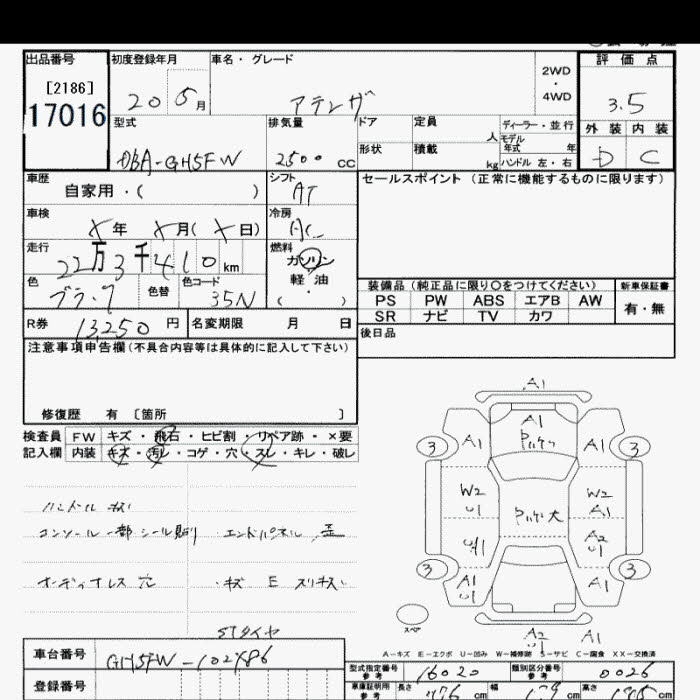 出品番号 初度登録年月 車名・グレード 評価点
[2186] 2WD
17016 20 5月 アテンザ ・ 3.5
4WD
型式 排気量 ドア 定員 ディーラー・並行 外装 内装
人 モデル年式 年
DBA-GH5FW 2500 CC 形状 積載 kg ハンドル 左・右 D C
車歴 シフト セールスポイント (正常に機能するものに限ります)
自家用・( ) AT
車検 冷房
X年 X月( X日) AC
走行 燃料
22万3千410km ガソリン
色 色替 色コード 軽油 装備品(純正品に限り○をつけてください) 新車保証書
ブラック 35N ( ・ ) PS PW ABS エアB AW 有・無
SR ナビ TV カワ
R券 13,250円 名変期限 月 日 後日品
注意事項申告欄(不具合内容等は具体的に記入して下さい)
修復歴 有 〔箇所 〕
検査員 FW キズ・飛石・ヒビ割・リペア跡・×要
記入欄 内装 キズ・汚レ・コゲ・穴・スレ・キレ・破レ
ハンドル キズ
コンソール一部シール貼り エンドパネル 歪
オーディオレス 穴 ・キズ E スリキズ
STタイヤ
A1
A1
3 A1 A1 3
W2 W2
U1 A1
A2
U1
3 A1 A1 3
U1
スペア A2 A1
U1
A-キズ E-エクボ U-凹み W-補修跡 S-サビ C-腐食 XX-交換済
車台番号 GH5FW-102486
型式指定番号 参考 16020 類別区分番号 参考 0026
登録番号 車庫証明用 参考 長さ 476cm 幅 179cm 高さ cm